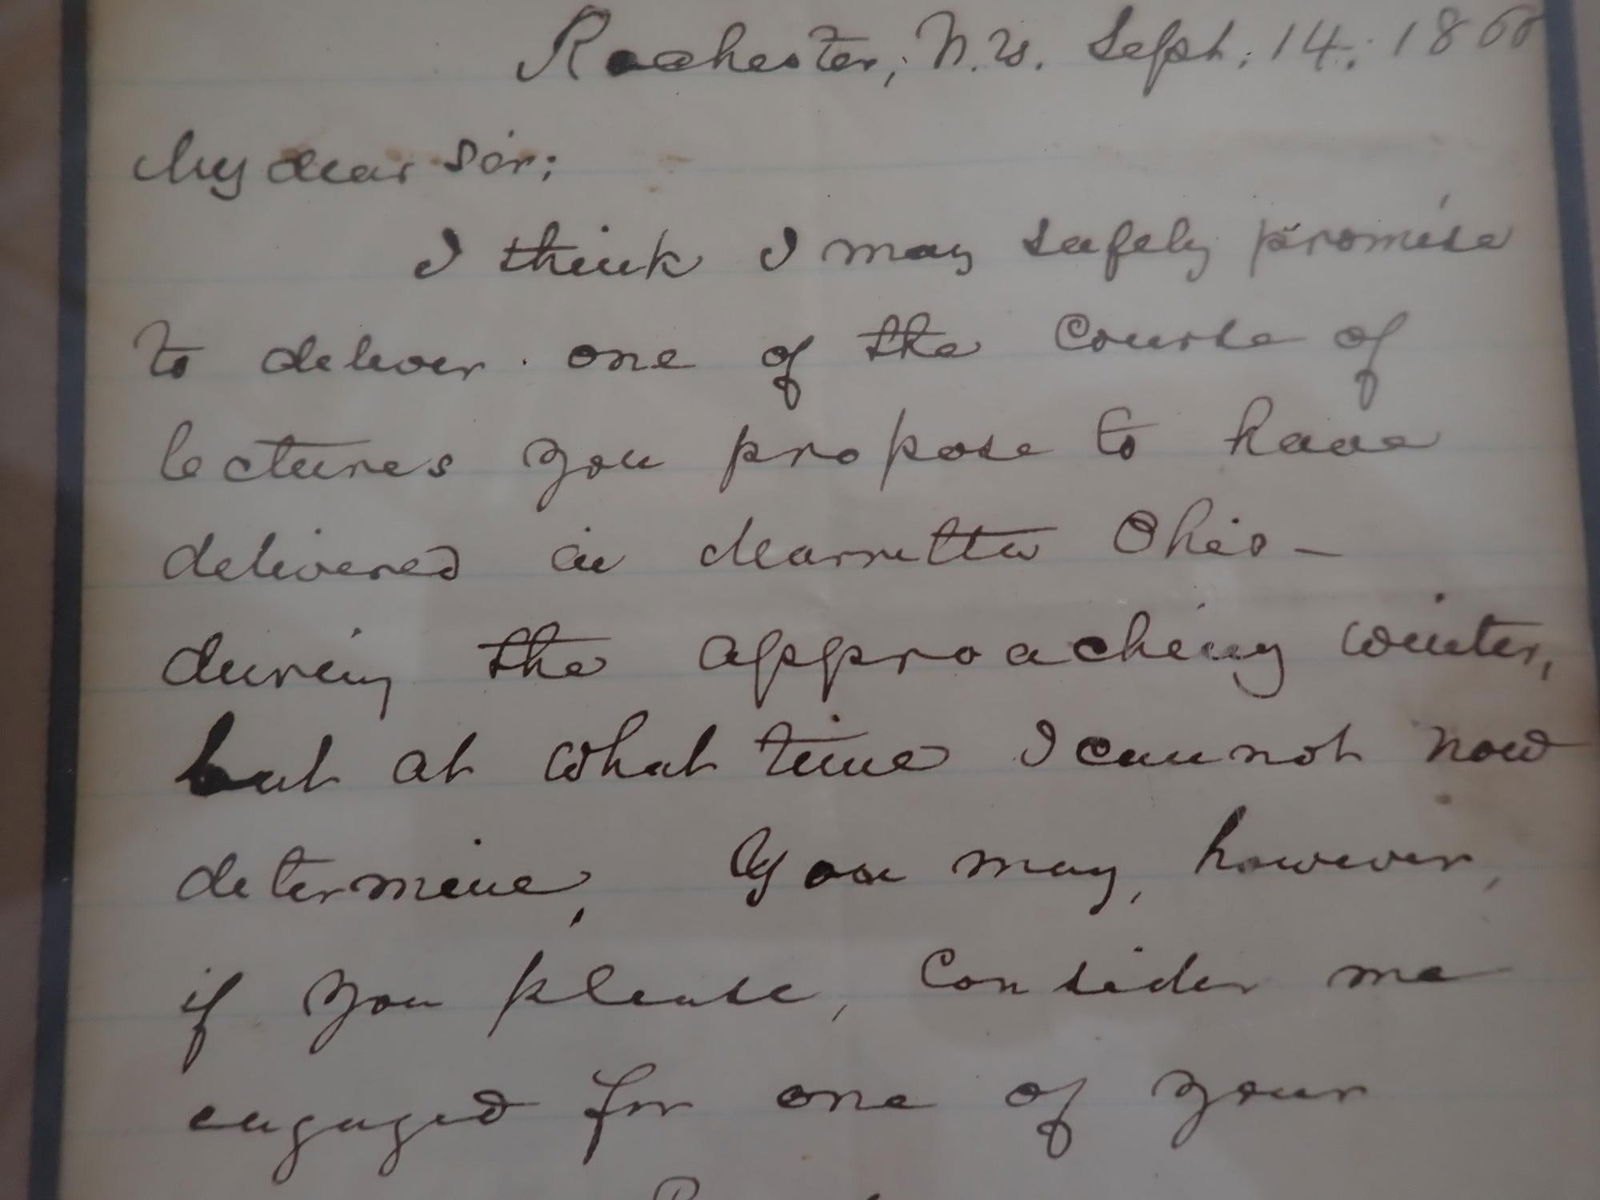 Rochester, N.Y. Sept. 14, 186
My dear Sir:
I think I may safely promise
to deliver one of the Course of
lectures you propose to have
delivered in Marietta Ohio—
during the approaching winter,
but at what time I cannot now
determine, You may, however,
if you please, Consider me
engaged for one of your